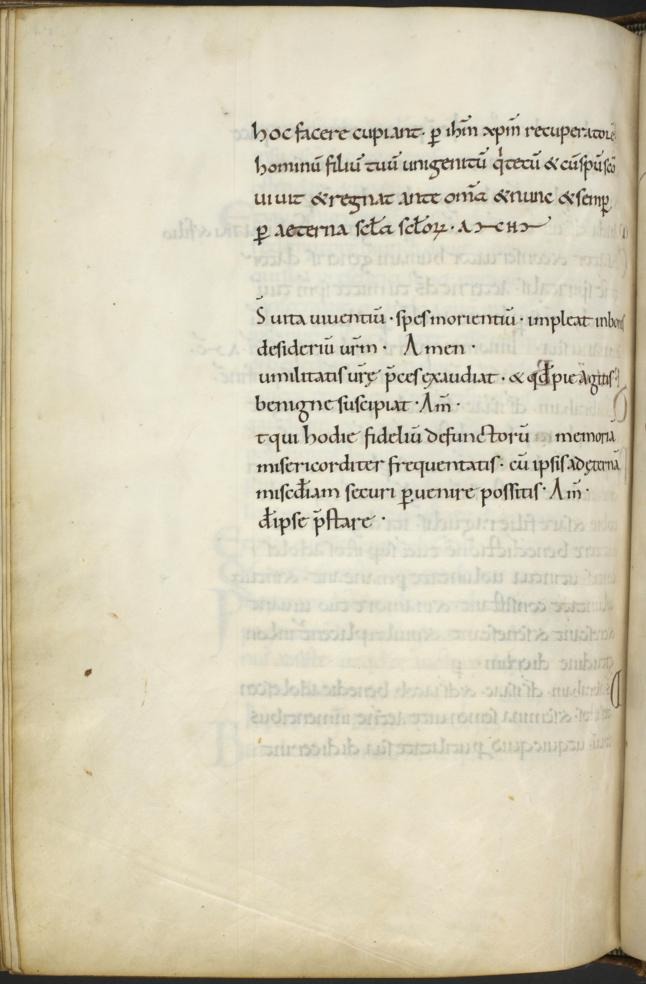 hoc facere cupiant· ꝑ ihm̄ xp̄m recuperatorē
hominū filiū tuū unigenitū q̇ tecū & cū sp̄u sc̄o
uiuit & regnat ante om̄ia & nunc & semꝑ
ꝑ aeterna scl̄a scl̄oꝝ· AMEN
S̄ uita uiuentiū· spes morientiū· impleat in bonis
desideriū ur̄m· Amen·
umilitatis urę̄ p̄ces exaudiat· & qđ pie agitis
benigne suscipiat· Am̄·
t qui hodie fideliū defunctorū memoriā
misericorditer frequentatis· cū ipsis ad ęternā
miscđiam securi ꝑuenire possitis· Am̄·
đ ipse p̄stare·